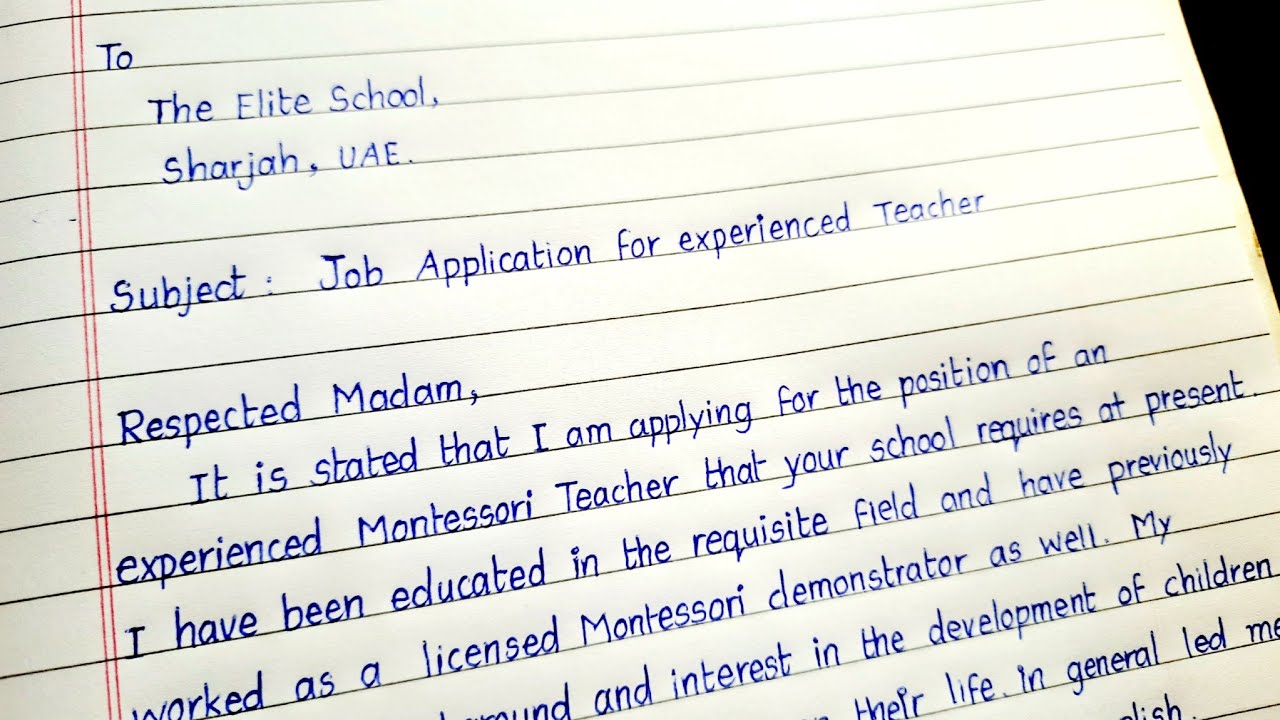 To
The Elite School,
Sharjah, UAE.
Subject : Job Application for experienced Teacher
Respected Madam,
It is stated that I am applying for the position of an
experienced Montessori Teacher that your school requires at present.
I have been educated in the requisite field and have previously
worked as a licensed Montessori demonstrator as well. My
and interest in the development of children
their life. in general led me